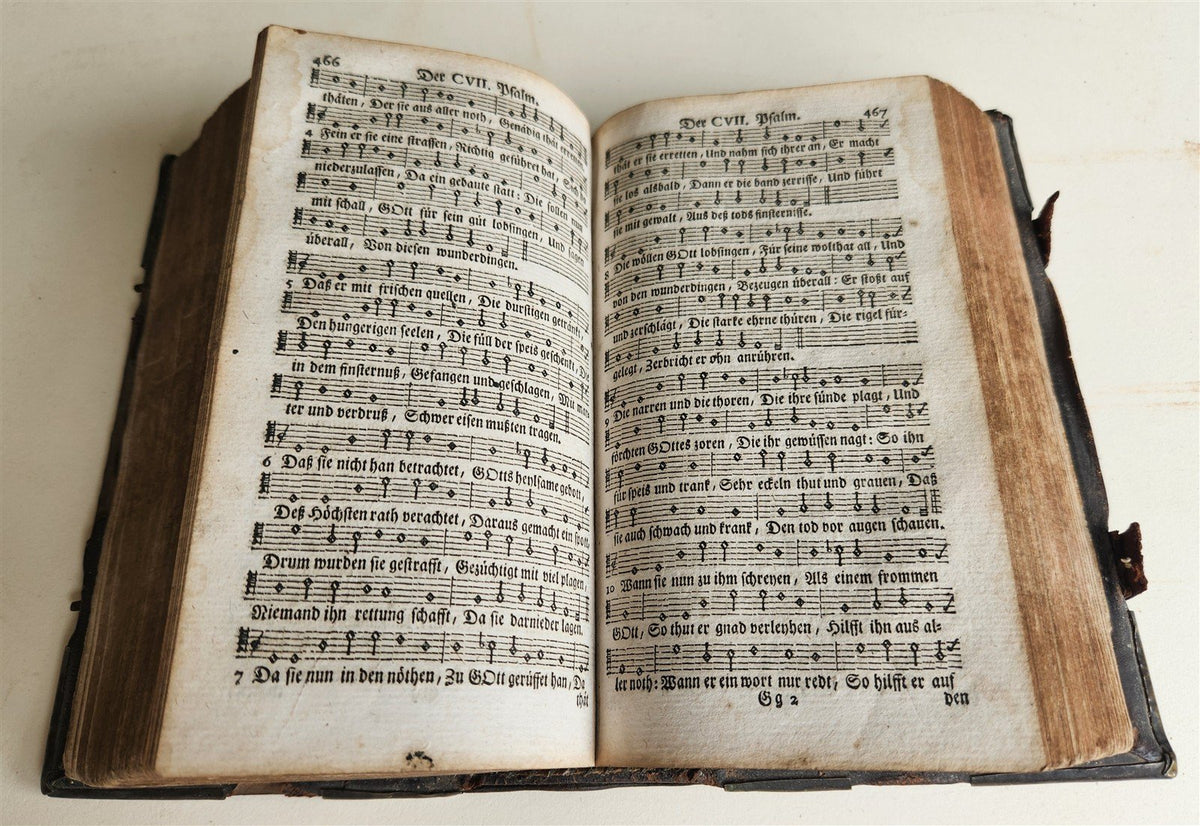 466
Der CVII. Psalm.
thäten, Der sie aus aller noth, Genädig thät
4 Fein er sie eine strassen, Richtig geführet hat,
niederzulassen, Da ein gebaute statt: Die sollen
mit schall, GOtt für sein güt lobsingen, Und sagen
überall, Von diesen wunderdingen.
5 Daß er mit frischen quellen, Die durstigen getränkt,
Den hungerigen seelen, Die füll der speis geschenkt,
in dem finsternuß, Gefangen und geschlagen, Mit
ter und verdruß, Schwer eisen mußten tragen.
6 Daß sie nicht han betrachtet, GOtts heylsame gebott,
Deß Höchsten rath verachtet, Daraus gemacht ein
Drum wurden sie gestrafft, Gezüchtigt mit viel plagen,
Niemand ihn rettung schafft, Da sie darnieder lagen.
7 Da sie nun in den nöthen, Zu GOtt gerüffet han, Da
thät
Der CVII. Psalm.
467
thät er sie erretten, Und nahm sich ihrer an, Er macht
sie los alsbald, Dann er die band zerrisse, Und führt
sie mit gewalt, Aus deß tods finsternisse.
8 Die wöllen GOtt lobsingen, Für seine wolthat all, Und
von den wunderdingen, Bezeugen überall: Er stoßt auf
und zerschlägt, Die starke ehrne thüren, Die rigel für-
gelegt, Zerbricht er ohn anrühren.
9 Die narren und die thoren, Die ihre sünde plagt, Und
förchten GOttes zoren, Die ihr gewüssen nagt: So ihn
für speis und trank, Sehr eckeln thut und grauen, Daß
sie auch schwach und krank, Den tod vor augen schauen.
10 Wann sie nun zu ihm schreyen, Als einem frommen
GOtt, So thut er gnad verleyhen, Hilfft ihn aus al-
ler noth: Wann er ein wort nur redt, So hilfft er auf
Gg 2
den